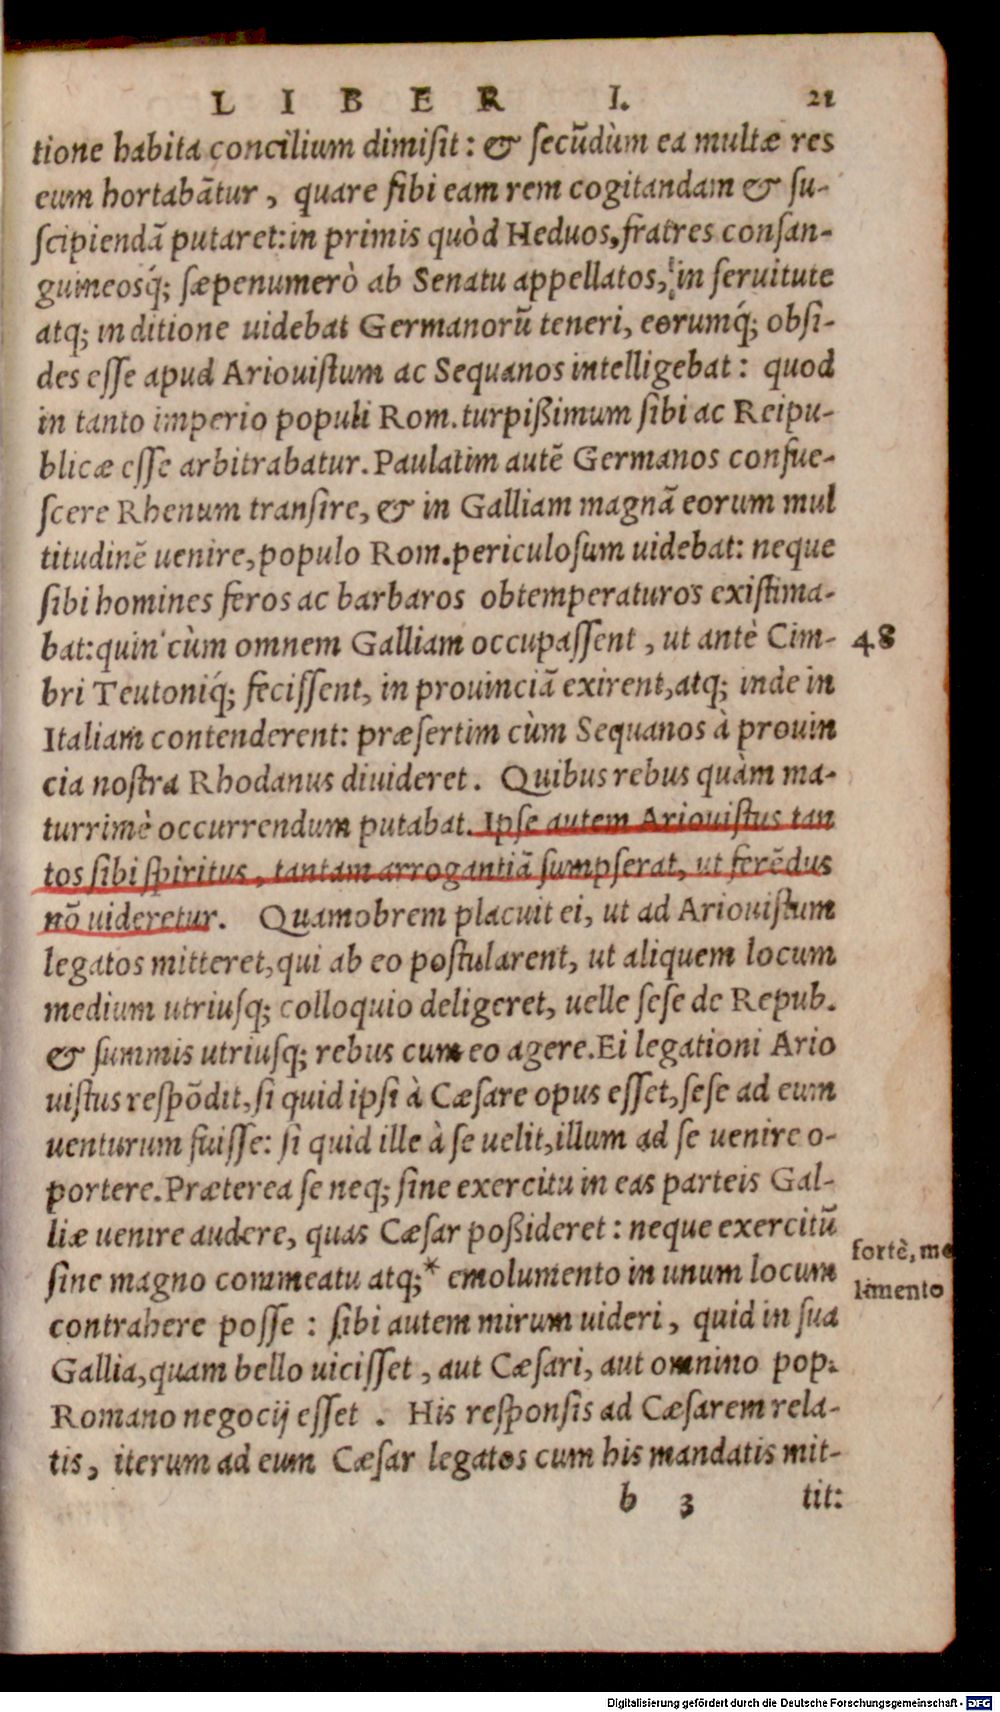 LIBER I. 21
tione habita concilium dimisit: & secũdùm ea multæ res
eum hortabãtur, quare sibi eam rem cogitandam & su-
scipiendã putaret: in primis quòd Heduos, fratres consan-
guineosq́; sæpenumerò ab Senatu appellatos, in seruitute
atq; in ditione uidebat Germanorũ teneri, eorumq́; obsi-
des esse apud Ariouistum ac Sequanos intelligebat: quod
in tanto imperio populi Rom. turpißimum sibi ac Reipu-
blicæ esse arbitrabatur. Paulatim autẽ Germanos consue-
scere Rhenum transire, & in Galliam magnã eorum mul
titudinẽ uenire, populo Rom. periculosum uidebat: neque
sibi homines feros ac barbaros obtemperaturos existima-
bat: quin cùm omnem Galliam occupassent, ut antè Cim- 48
bri Teutoniq́; fecissent, in prouinciã exirent, atq; inde in
Italiam contenderent: præsertim cùm Sequanos à prouin
cia nostra Rhodanus diuideret. Quibus rebus quàm ma-
turrimè occurrendum putabat. Ipse autem Ariouistus tan
tos sibi spiritus, tantam arrogantiã sumpserat, ut ferẽdus
nõ uideretur. Quamobrem placuit ei, ut ad Ariouistum
legatos mitteret, qui ab eo postularent, ut aliquem locum
medium utriusq; colloquio deligeret, uelle sese de Repub.
& summis utriusq; rebus cum eo agere. Ei legationi Ario
uistus respõdit, si quid ipsi à Cæsare opus esset, sese ad eum
uenturum fuisse: si quid ille à se uelit, illum ad se uenire o-
portere. Præterea se neq; sine exercitu in eas parteis Gal-
liæ uenire audere, quas Cæsar poßideret: neque exercitũ
sine magno commeatu atq;* emolumento in unum locum
fortè, mo
limento
contrahere posse: sibi autem mirum uideri, quid in sua
Gallia, quam bello uicisset, aut Cæsari, aut omnino pop.
Romano negocij esset. His responsis ad Cæsarem rela-
tis, iterum ad eum Cæsar legatos cum his mandatis mit-
b 3 tit:
Digitalisierung gefördert durch die Deutsche Forschungsgemeinschaft - DFG